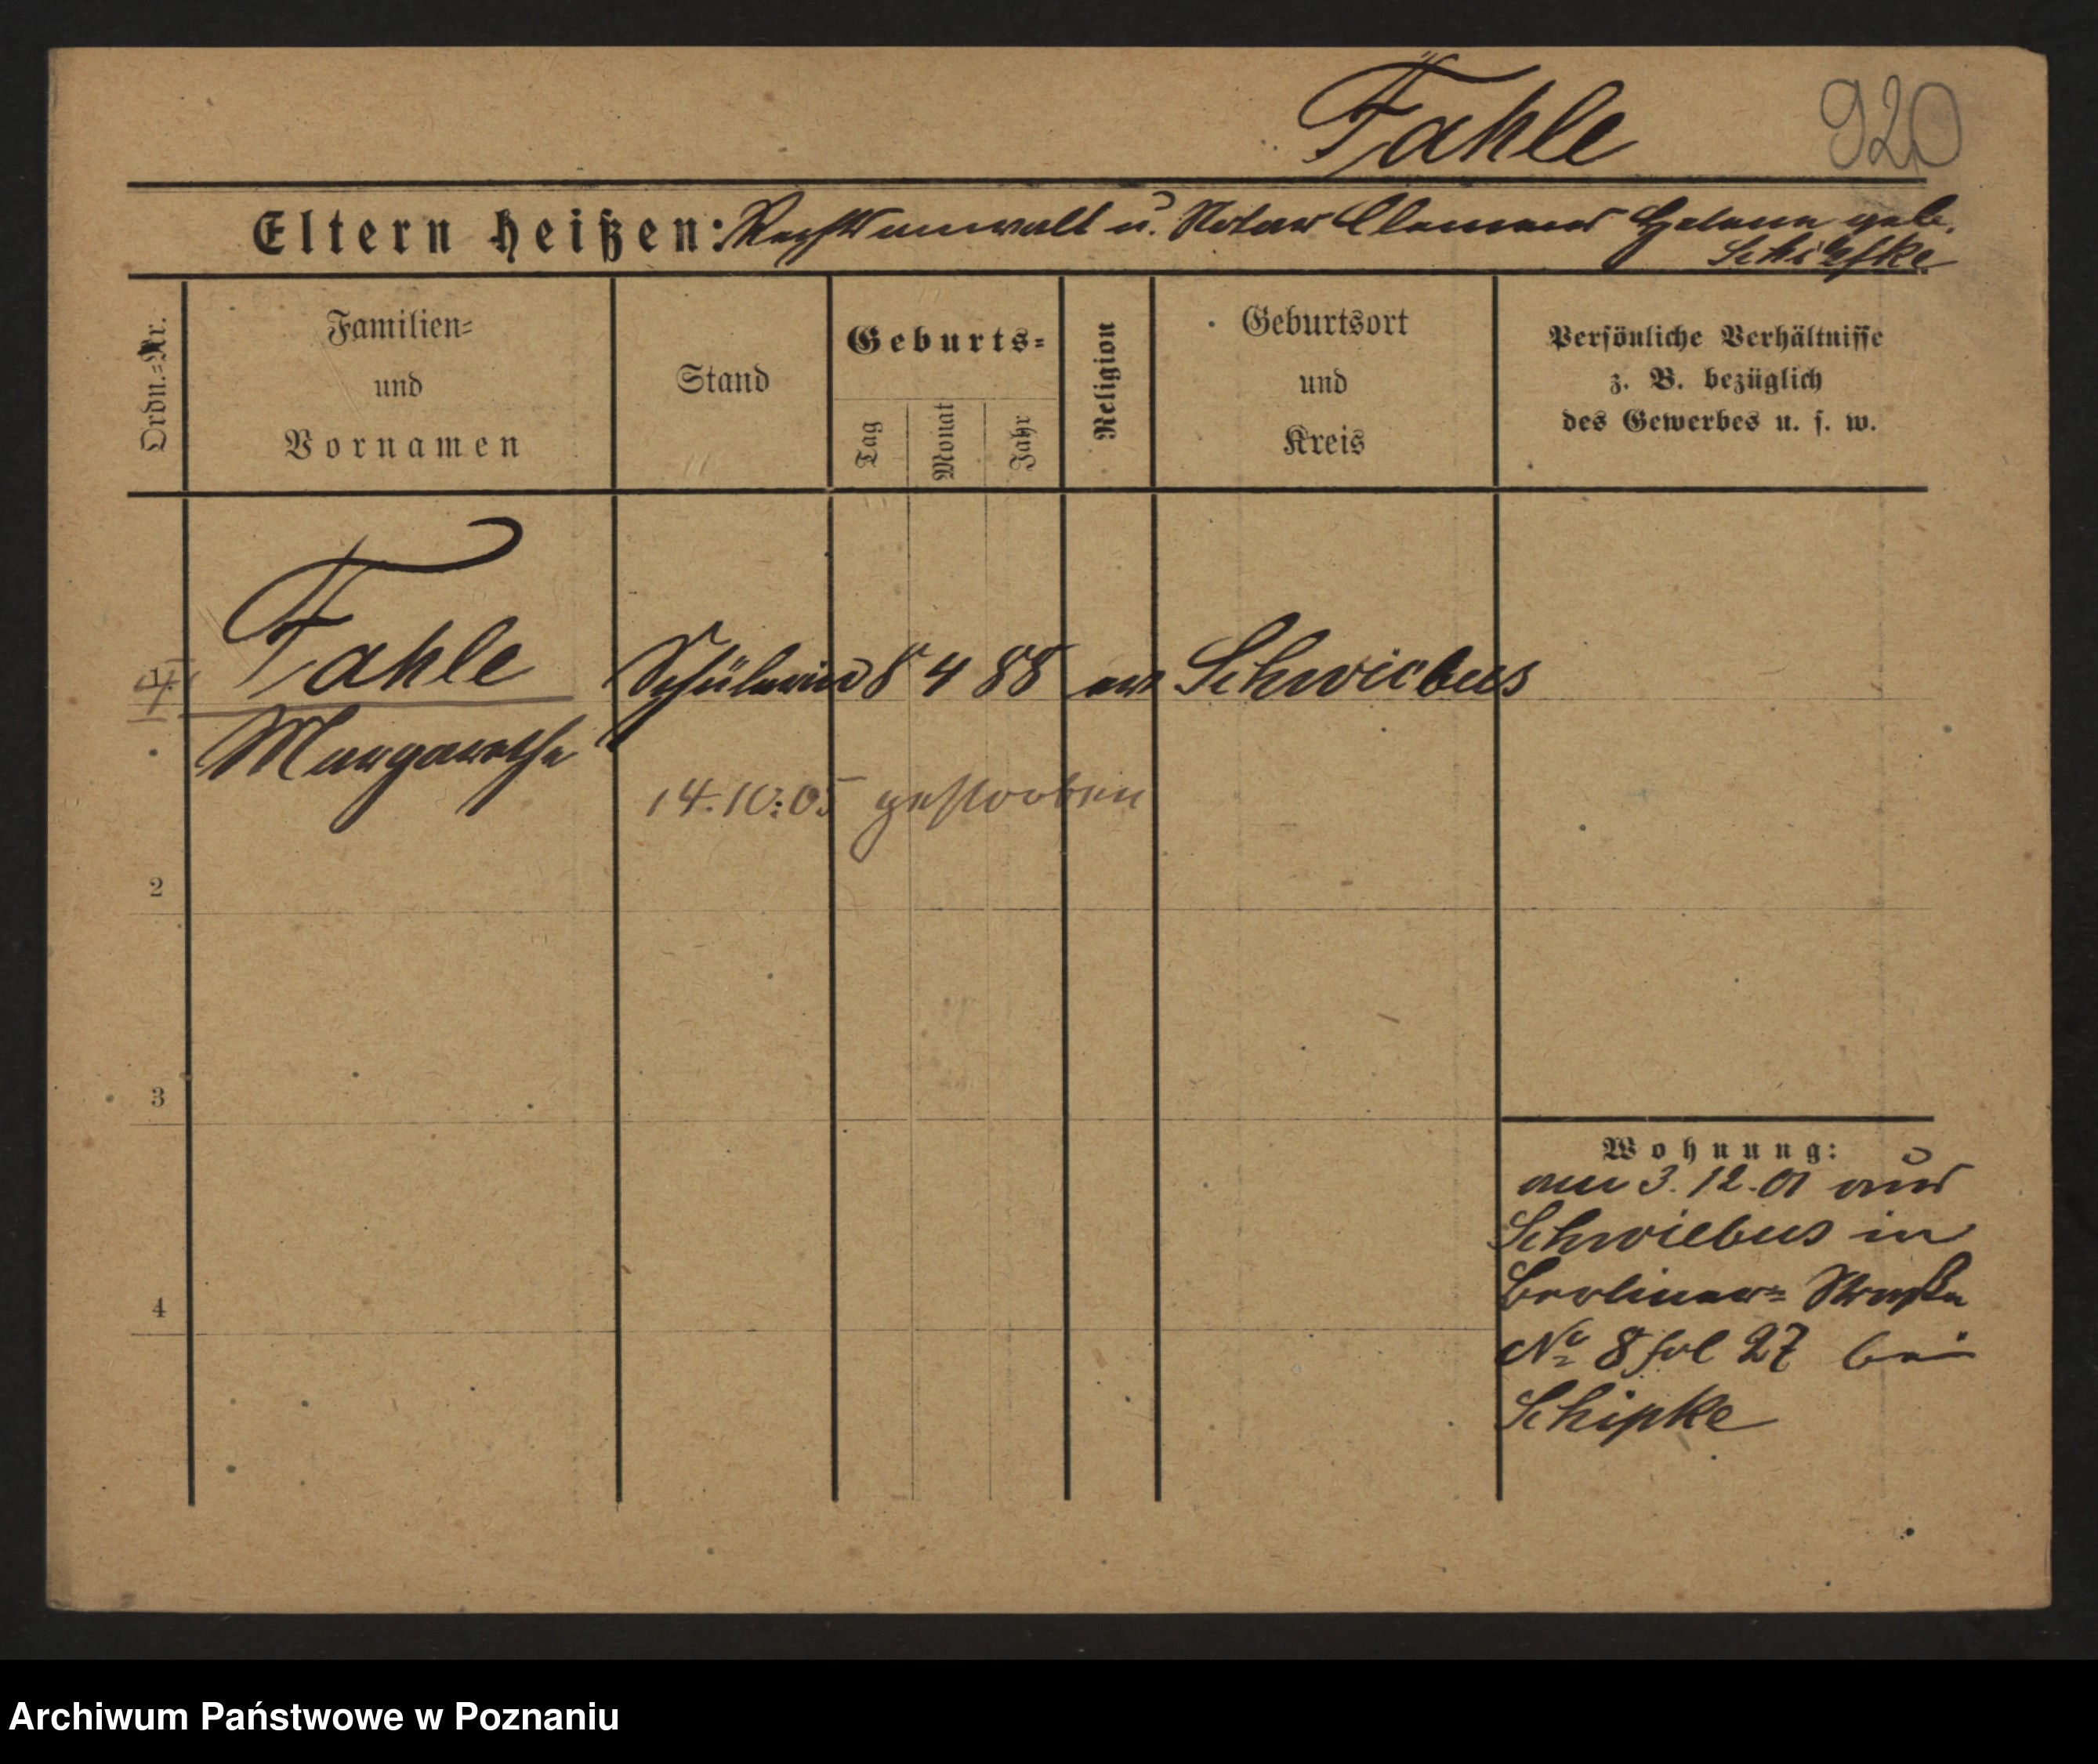 Fahle 920
Eltern heißen: Rechtsanwalt u. Notar Clemens Helene geb.
Ordn.-Nr.
Familien-
und
Vornamen
Stand
Geburts-
Tag
Monat
Jahr
Religion
Geburtsort
und
Kreis
Persönliche Verhältnisse
z. B. bezüglich
des Gewerbes u. s. w.
1 Fahle Schülerin 8 4 88 ev Schwiebus
Margarethe
14.10.05 gestorben
2
3
4
Wohnung:
am 3.12.01 aus
Schwiebus in
Berliner- Straße
No 8 fol 27 bei
Schipke
Archiwum Państwowe w Poznaniu